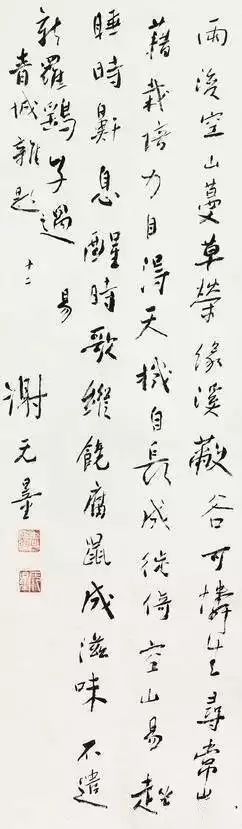 雨後空山蔓草榮緣溪蔽谷可憐生尋常豈
藉栽培力自得天機自長成徙倚空山易趖
睡時鼾息醒時歌縱饒腐鼠成滋味不遣
新羅鷂子過 易
青城雜題 十二
謝无量